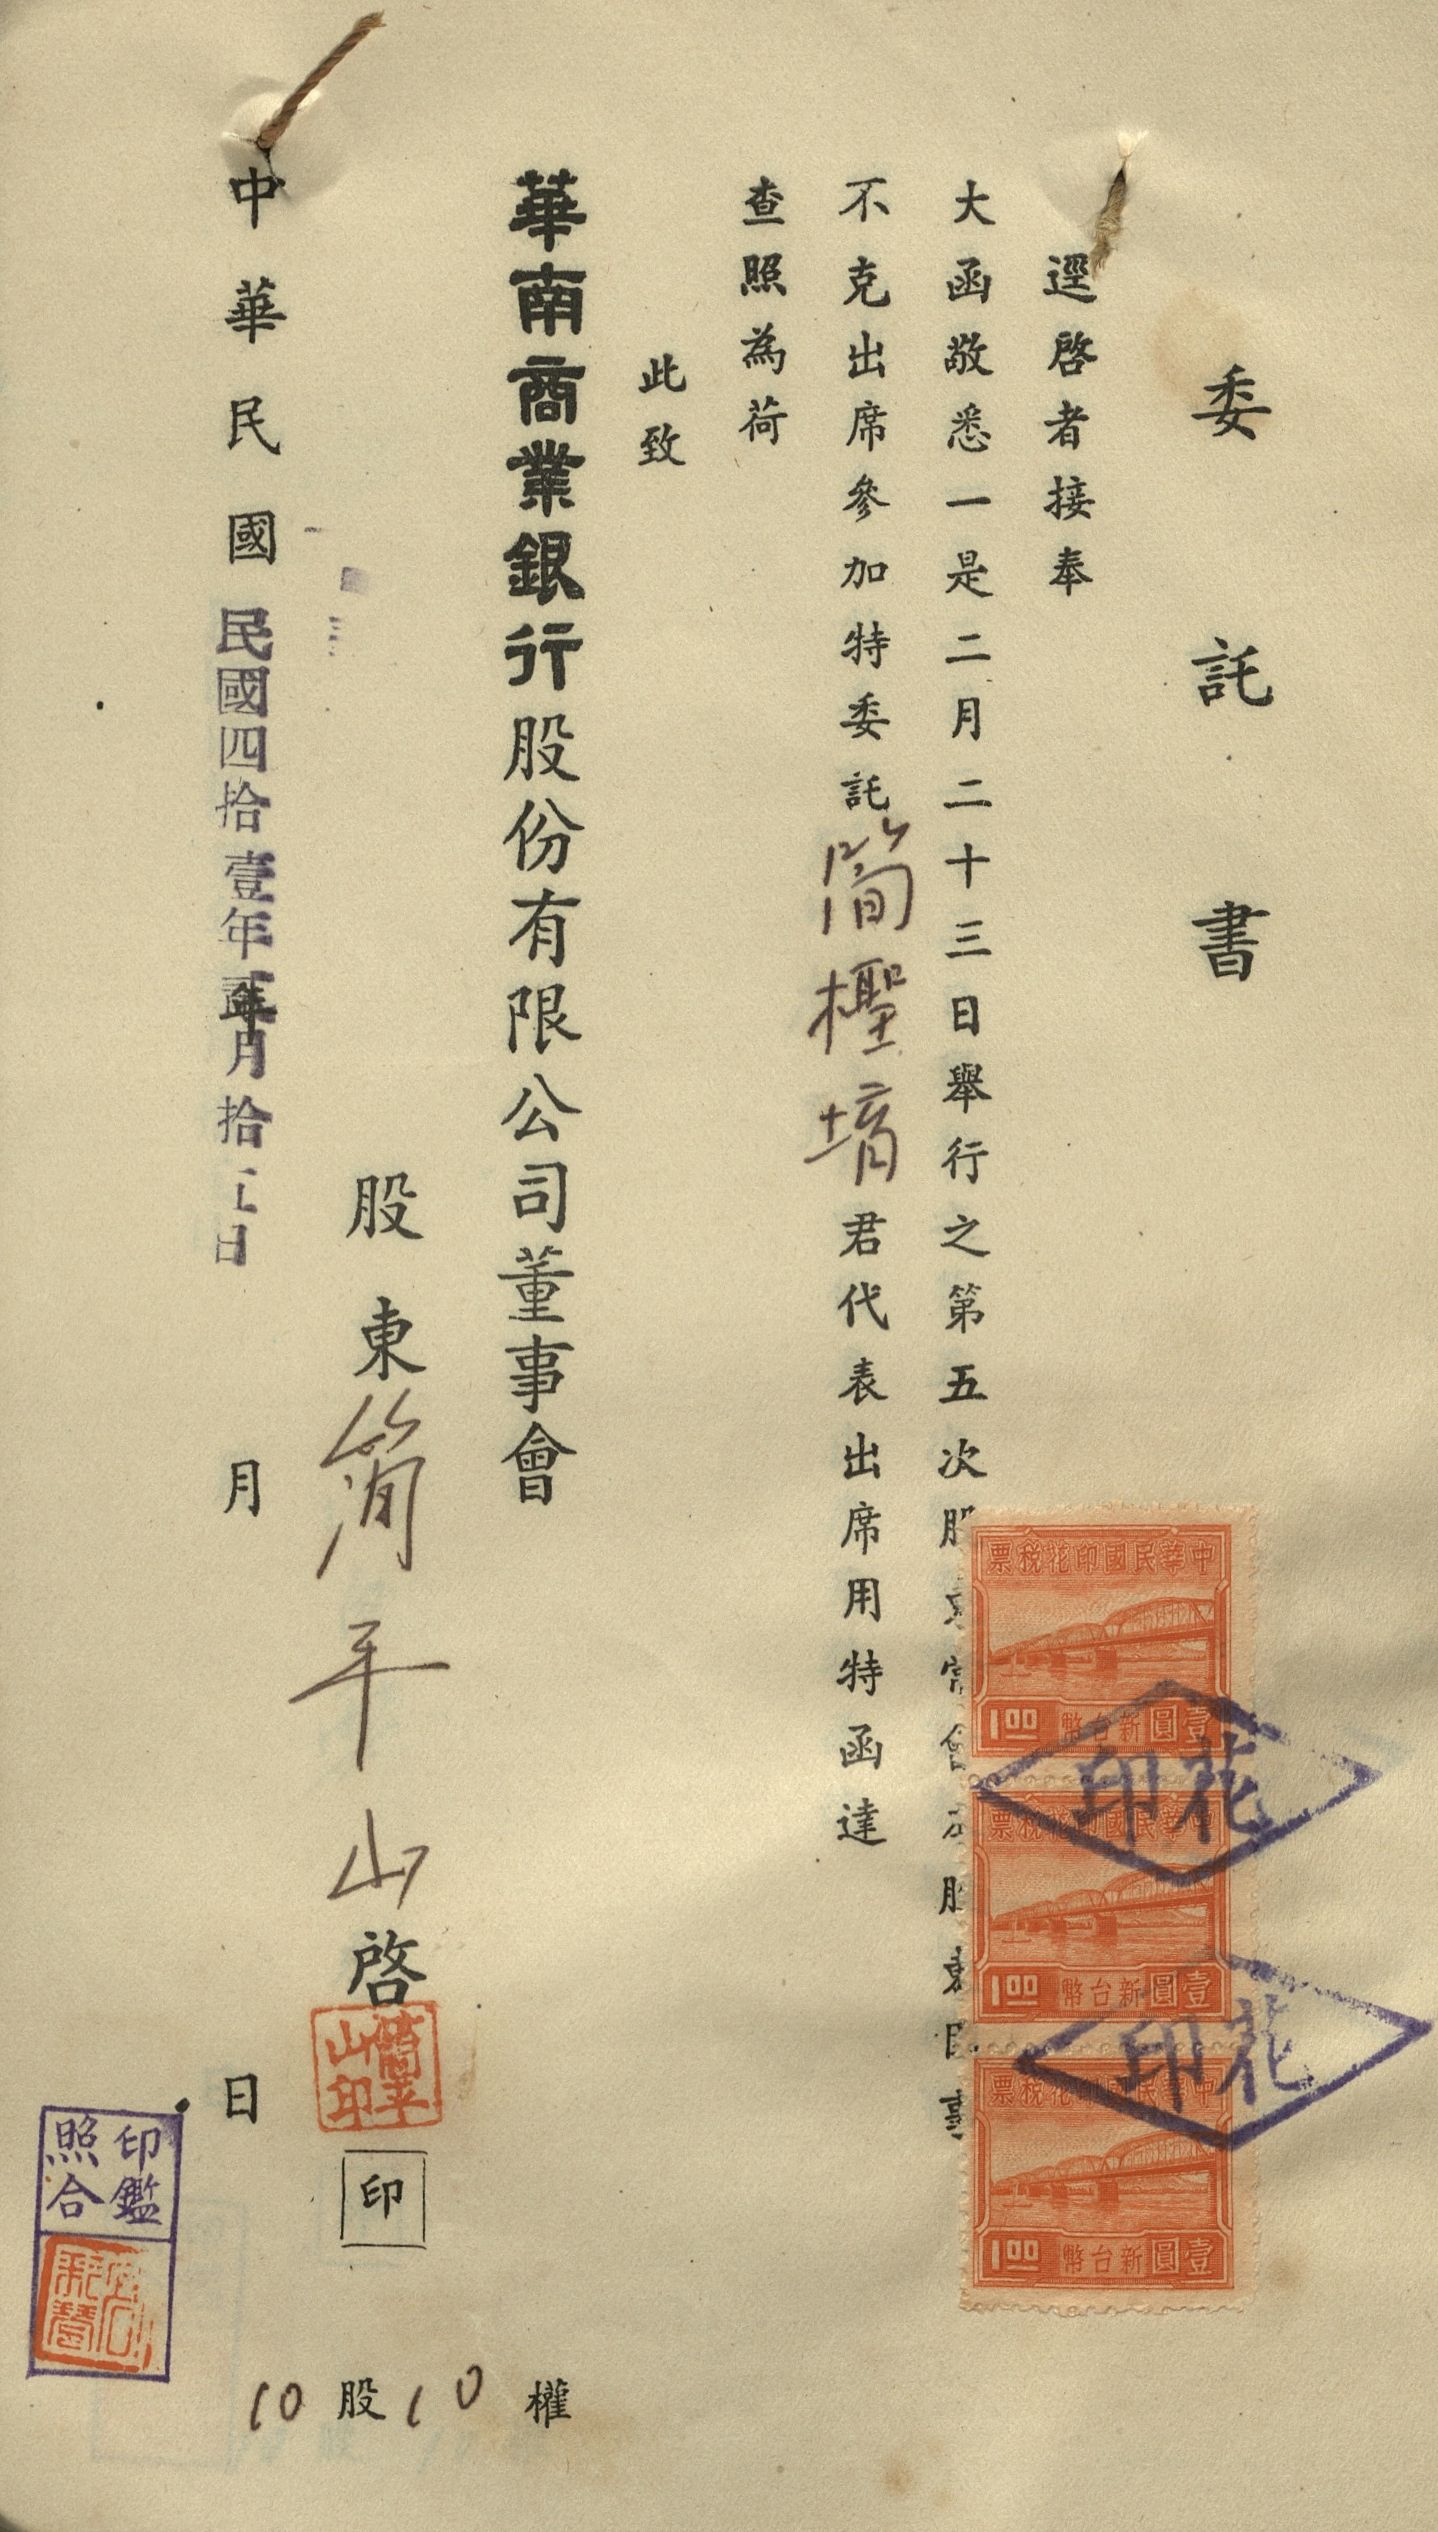 委託書
逕啓者接奉
大函敬悉一是二月二十三日舉行之第五次股東常會
股東
不克出席參加特委託簡檉堉君代表出席用特函達
查照為荷
此致
華南商業銀行股份有限公司董事會
股東簡平山啓
簡平山印
印
10股10權
中華民國年月日
民國四拾壹年貳月拾日
印鑑照合
中華民國印花稅票
1.00 新台幣壹圓
中華民國印花稅票
1.00 新台幣壹圓
中華民國印花稅票
1.00 新台幣壹圓
印花
印花